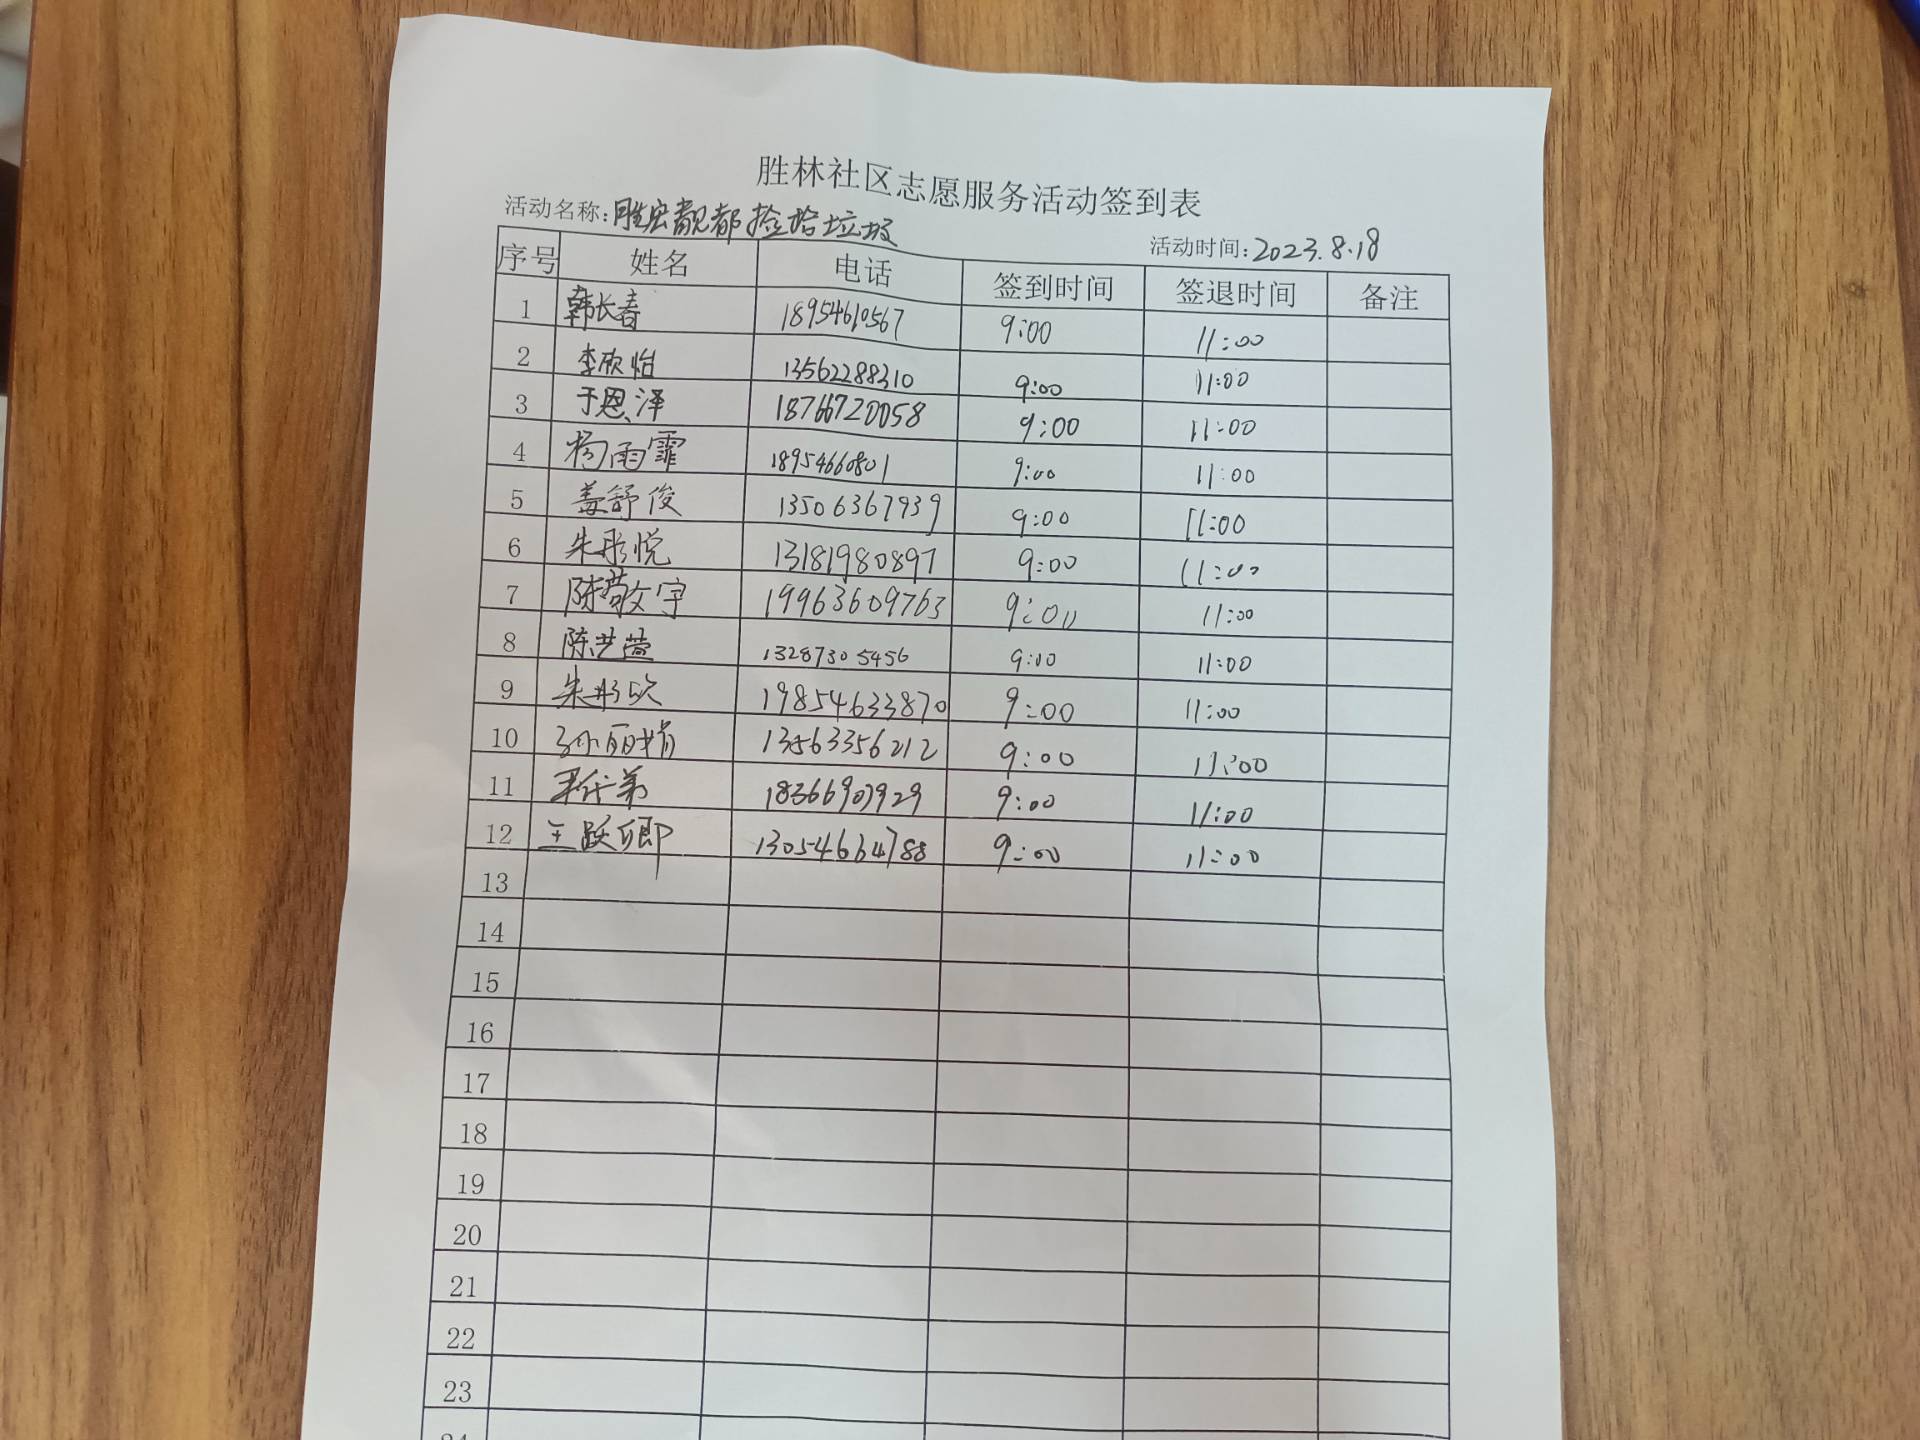 胜林社区志愿服务活动签到表
活动名称:胜宏靓都捡拾垃圾 活动时间:2023.8.18
序号 姓名 电话 签到时间 签退时间 备注
1 韩长春 18954610567 9:00 11:00
2 李欣怡 13562288310 9:00 11:00
3 于恩泽 18766720058 9:00 11:00
4 杨雨霏 18954660801 9:00 11:00
5 盖舒俊 13506367939 9:00 11:00
6 朱彤悦 13181980897 9:00 11:00
7 陈敬文宇 19963609763 9:00 11:00
8 陈艺萱 13287305456 9:00 11:00
9 朱彤欣 19854633870 9:00 11:00
10 孙丽娟 13563356212 9:00 11:00
11 18366907929 9:00 11:00
12 王跃卿 13054664788 9:00 11:00
13
14
15
16
17
18
19
20
21
22
23
24